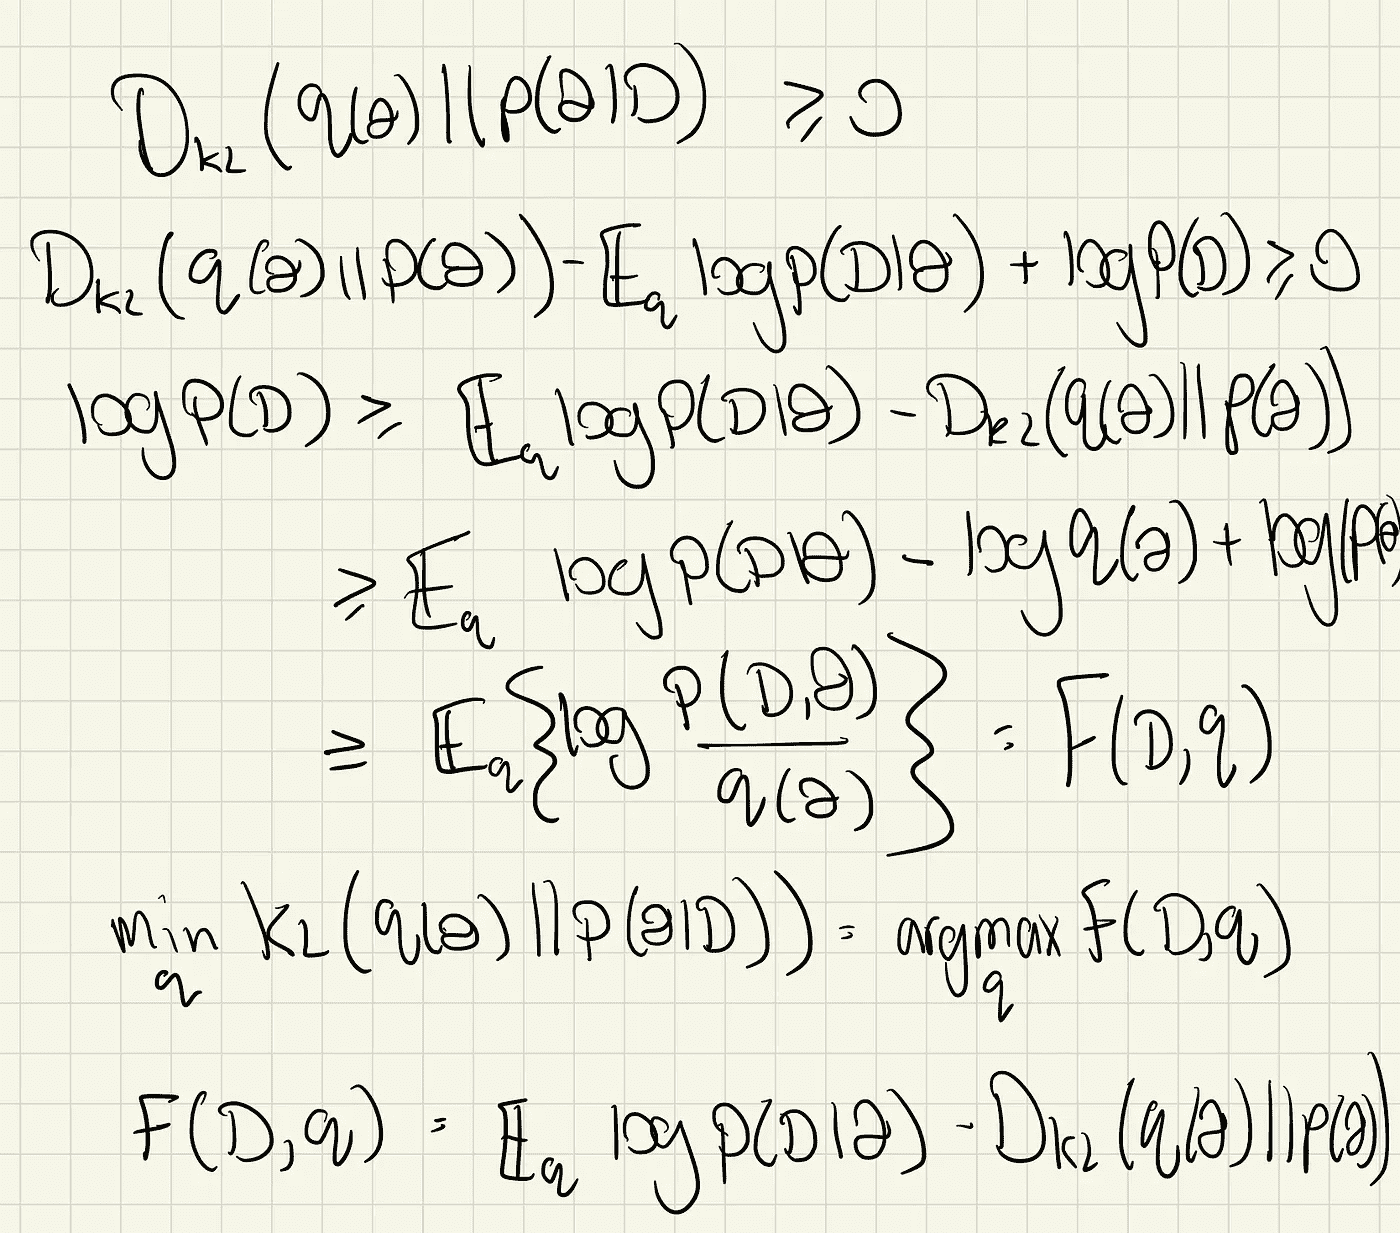 D_KL(q(θ)||p(θ|D) ≥ 0
D_KL(q(θ)||p(θ)) - E_q log p(D|θ) + log p(D) ≥ 0
log p(D) ≥ E_q log p(D|θ) - D_KL(q(θ)||p(θ))
≥ E_q log p(D|θ) - log q(θ) + log(pθ)
≥ E_q{log p(D,θ)/q(θ)} = F(D,q)
min_q KL(q(θ)||p(θ|D)) = argmax_q F(D,q)
F(D,q) = E_q log p(D|θ) - D_KL(q(θ)||p(θ))